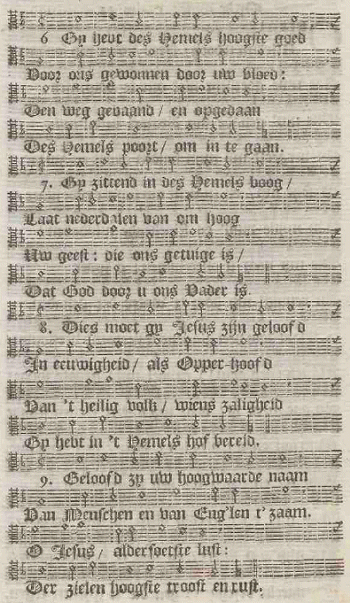 6 Gy hebt des Hemels hoogste goed
Voor ons gewonnen door uw bloed:
Den weg gebaand / en opgedaan
Des Hemels poort / om in te gaan.
7. Gy zittend in des Hemels boog /
Laat nederdalen van om hoog
Uw geest: die ons getuige is /
Dat God door u ons Vader is.
8. Dies moet gy Jesus zijn geloofd
In eeuwigheid / als Opper-hoofd
Van 't heilig volk / wiens zaligheid
Gy hebt in 't Hemels hof bereid.
9. Geloofd zy uw hoogwaarde naam
Van Menschen en van Eng'len t'zaam.
O Jesus / aldersoetste lust:
Der zielen hoogste troost en rust.